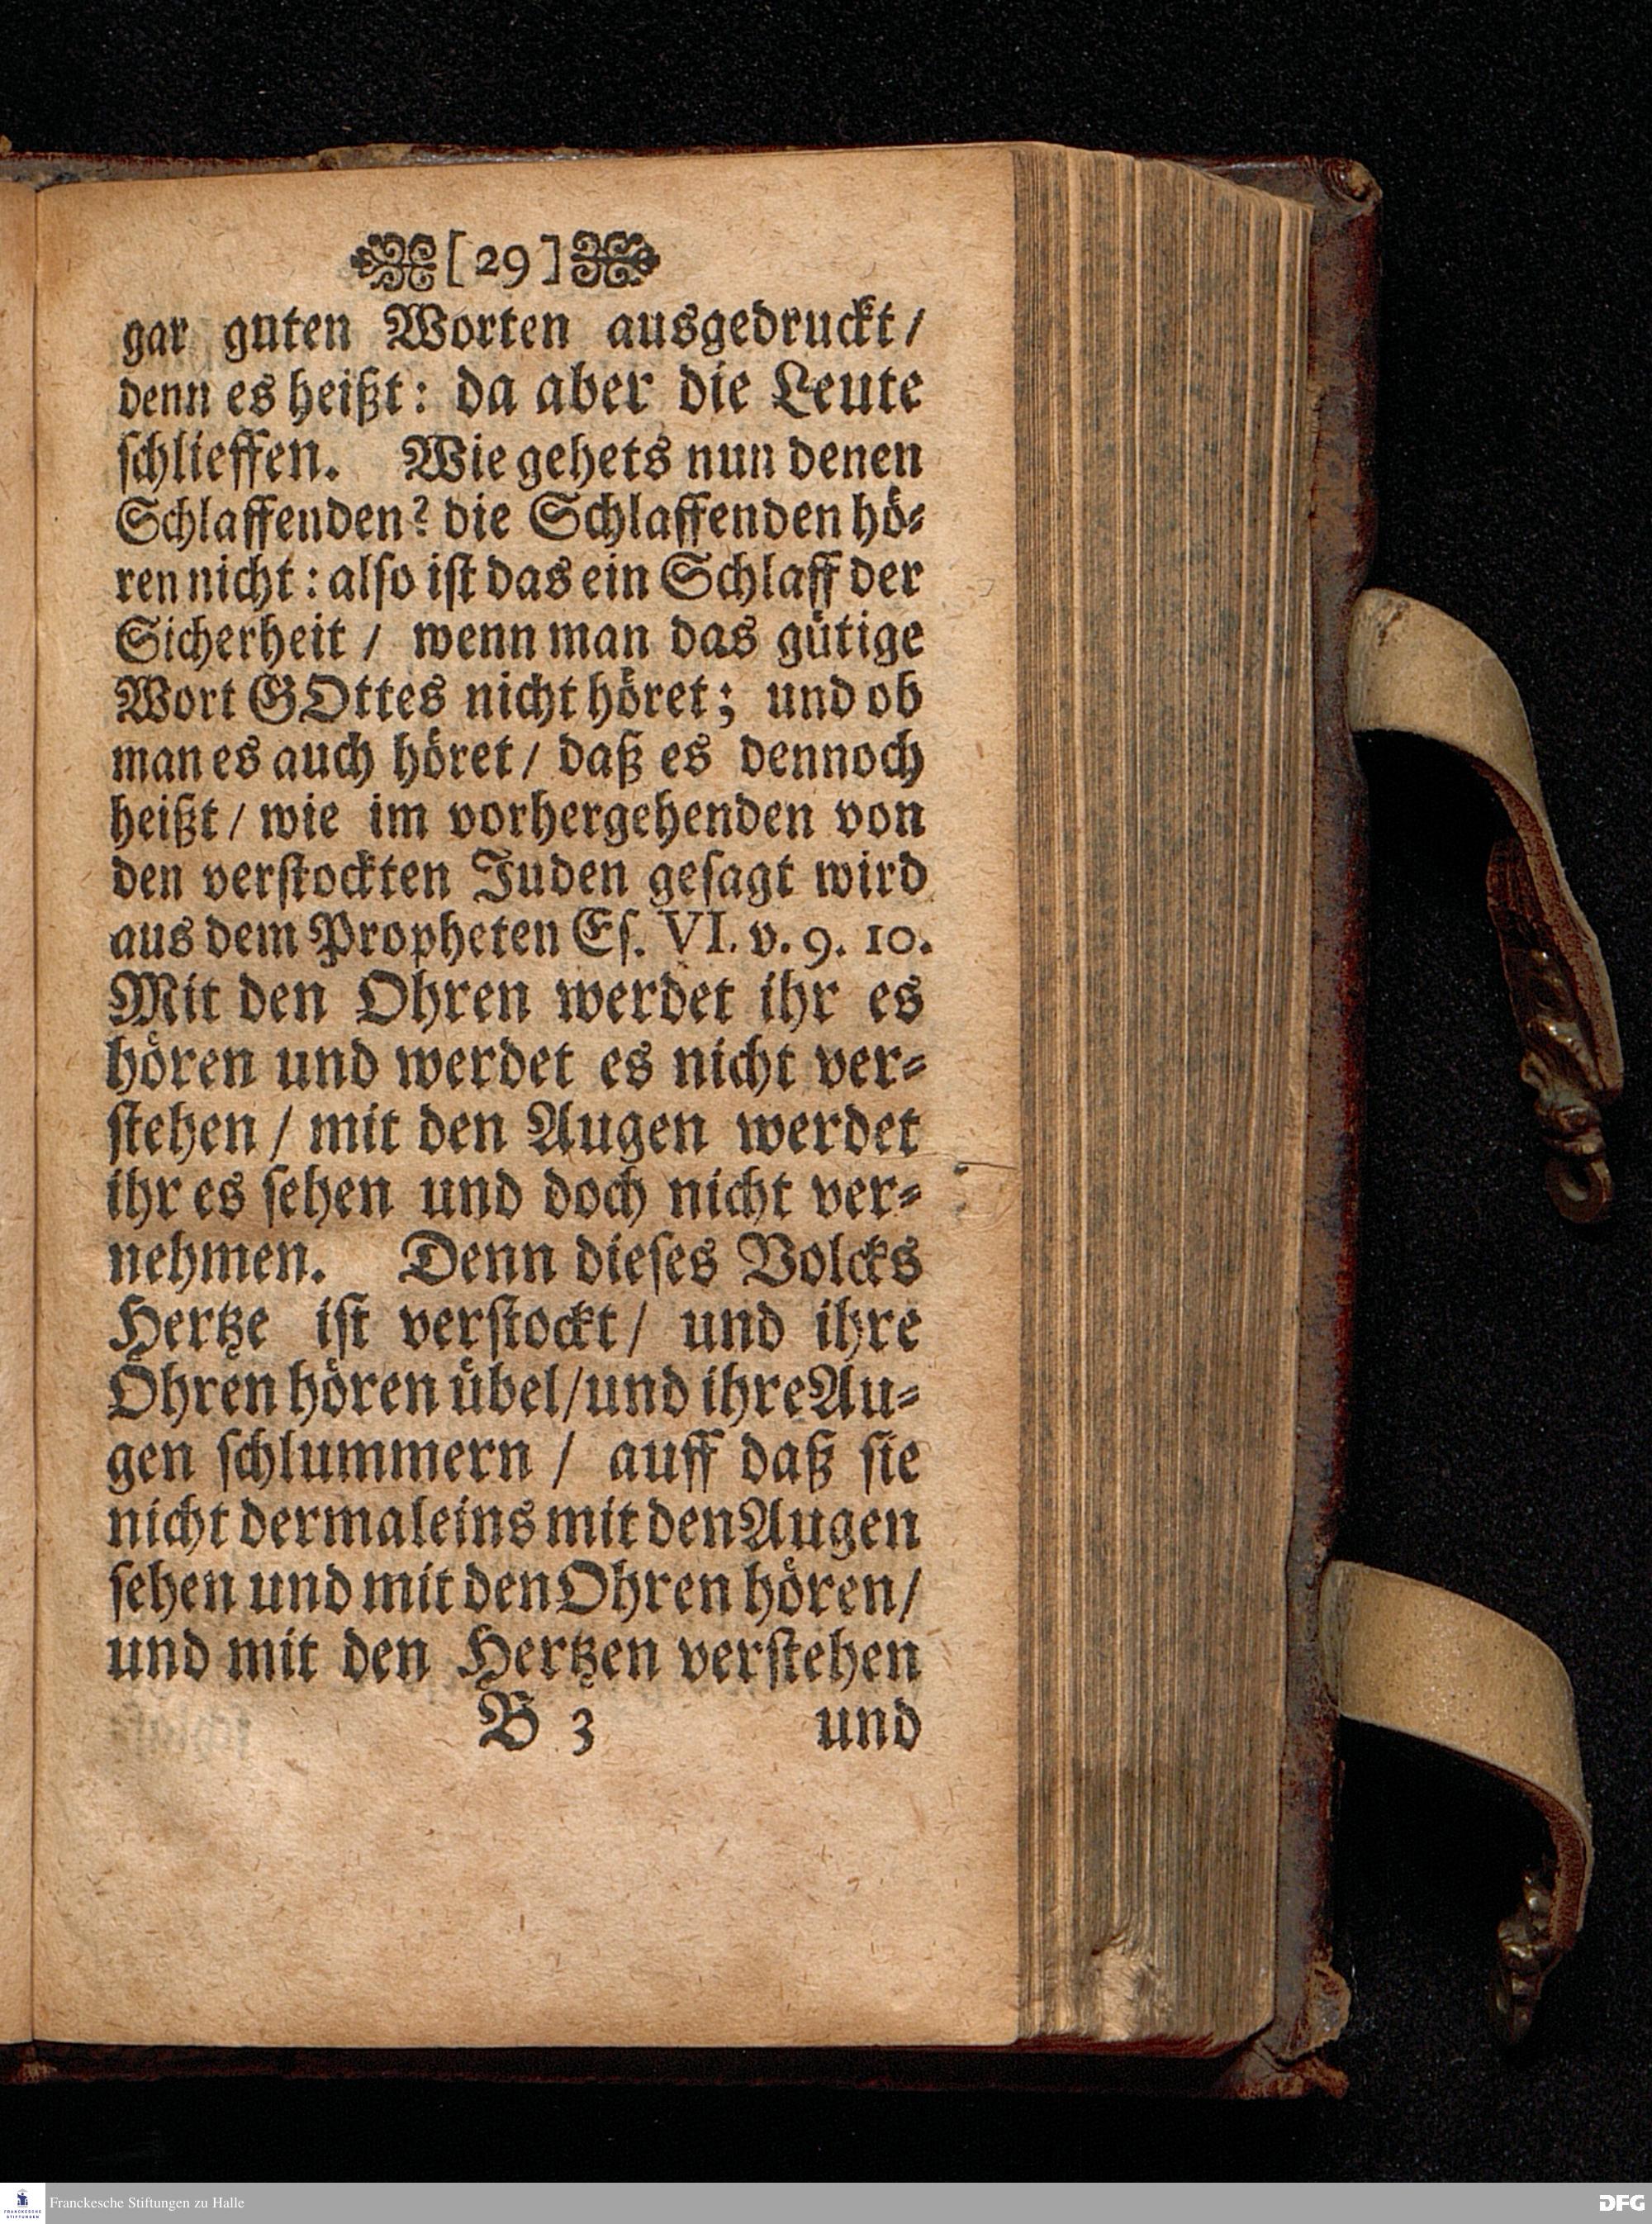 [29]
gar guten Worten ausgedruckt/
denn es heißt: da aber die Leute
ſchlieffen. Wie gehets nun denen
Schlaffenden? die Schlaffenden hoͤ⸗
ren nicht: alſo iſt das ein Schlaff der
Sicherheit / wenn man das guͤtige
Wort GOttes nicht hoͤret; und ob
man es auch hoͤret / daß es dennoch
heißt / wie im vorhergehenden von
den verſtockten Juden geſagt wird
aus dem Propheten Eſ. VI. v. 9. 10.
Mit den Ohren werdet ihr es
hoͤren und werdet es nicht ver⸗
ſtehen / mit den Augen werdet
ihr es ſehen und doch nicht ver⸗
nehmen. Denn dieſes Volcks
Hertze iſt verſtockt / und ihre
Ohren hoͤren uͤbel/und ihre Au⸗
gen ſchlummern / auff daß ſie
nicht dermaleins mit den Augen
ſehen und mit den Ohren hoͤren/
und mit den Hertzen verſtehen
B 3 und
Franckesche Stiftungen zu Halle
DFG